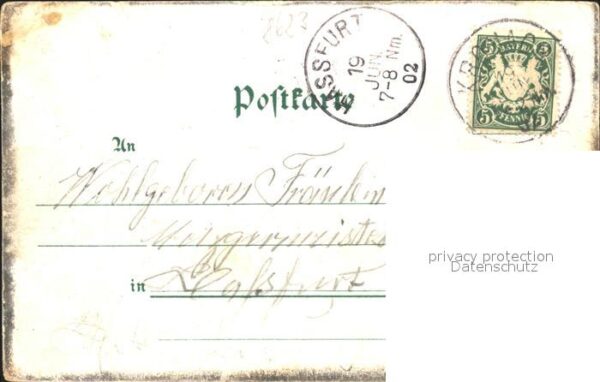 2623
HASSFURT
19
JUN.
7-8 Nm.
02
5 BAYERN 5
5 PFENNIG 5
Postkarte
An
Wohlgeboren Fräulein
Metzgermeister
in Haßfurt
privacy protection
Datenschutz